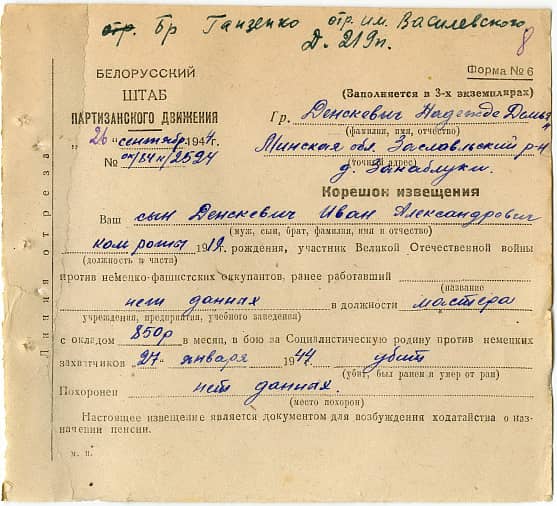 отр. Бр Ганзенко отр. им. Василевского,
Д. 219п. 8
БЕЛОРУССКИЙ
ШТАБ
ПАРТИЗАНСКОГО ДВИЖЕНИЯ
"26" сентябр 1944г.
№ 2524
Форма № 6
(Заполняется в 3-х экземплярах)
Гр. Денскевич Надежде Демья
(фамилия, имя, отчество)
Минская обл. Заславльский р-н
(точный адрес)
д.
Корешок извещения
Ваш сын Денскевич Иван Александрович
(муж, сын, брат, фамилия, имя и отчество)
ком роты 1919. рождения, участник Великой Отечественной войны
(должность и часть)
против немецко-фашистских оккупантов, ранее работавший
(название
нет данных в должности мастера
учреждения, предприятия, учебного заведения)
с окладом 850р в месяц, в бою за Социалистическую родину против немецких
захватчиков 27 января 1944 убит
(убит, был ранен и умер от ран)
Похоронен нет данных.
(место похорон)
Настоящее извещение является документом для возбуждения ходатайства о наз-
начении пенсии.
м. п.
Линия отреза